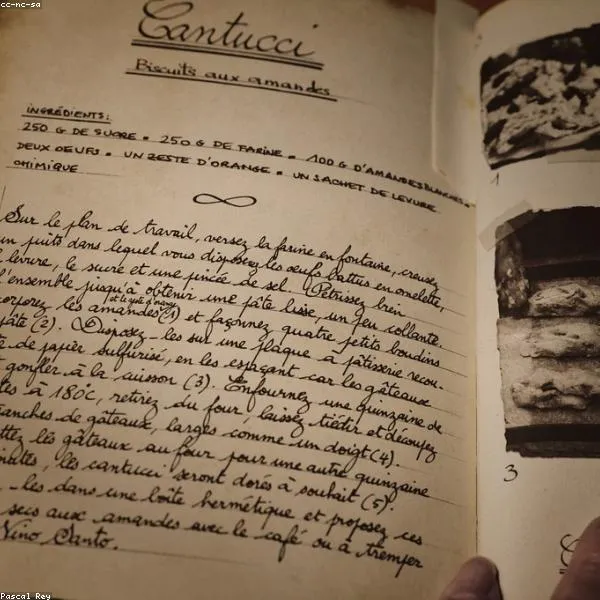 cc-nc-sa
Cantucci
Biscuits aux amandes
INGRÉDIENTS:
250 G DE SUCRE • 250 G DE FARINE • 100 G D'AMANDES BLANCHES •
DEUX OEUFS • UN ZESTE D'ORANGE • UN SACHET DE LEVURE
CHIMIQUE
Sur le plan de travail, versez la farine en fontaine, creusez
un puits dans lequel vous disposez les oeufs battus en omelette,
levure, le sucre et une pincée de sel. Pétrissez bien
l'ensemble jusqu'à obtenir une pâte lisse, un peu collante.
et le zeste d'orange
corporez les amandes (1) et façonnez quatre petits boudins
pâte (2). Disposez-les sur une plaque à pâtisserie recou-
te de papier sulfurisé, en les espaçant car les gâteaux
t gonfler à la cuisson (3). Enfournez une quinzaine de
tes à 180°C, retirez du four, laissez tiédir et découpez
tranches de gâteaux, larges comme un doigt (4).
ttez les gâteaux au four pour une autre quinzaine
inutes, les cantucci seront dorés à souhait (5).
-les dans une boîte hermétique et proposez ces
secs aux amandes avec le café ou à tremper
Vino Santo.
1
3
Pascal Rey